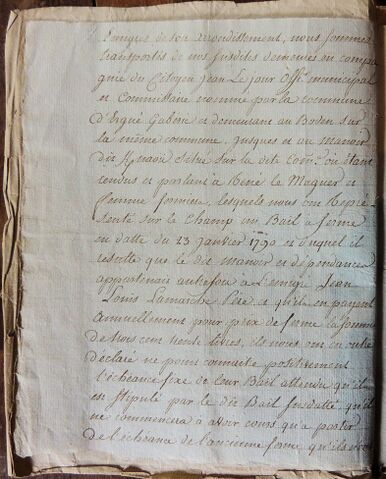 Emigrés de son arrondissement, nous sommes
transportés de nos susdites demeures en compa
gnie du Citoyen Jean Le jour Off.r municipal
et Commissaire nommé par la commune
d'Ergué Gabéric et demeurant au Boden sur
la même commune, jusques et au manoir
du situé sur la dite Com.ne où étant
rendus et parlant à René le Maguer et
femme fermiers, lesquels nous ont Repré-
senté sur le Champ un Bail a ferme
en datte du 23 janvier 1790 et duquel il
resulte que le dit manoir et dépendances
appartenais autrefois a L'emigré Jean
Louis Lamarche Père et qu'ils en payent
annuellement pour prix de ferme la somme
de trois cent trente livres, ils nous ont en outre
declaré ne point connaitre positivement
l'échéance fixe de leur Bail attendu qu'il
est stipulé par le dit Bail susdatté qu'il
ne commencera a avoir cours qu'a partir
de l'échéance de l'ancienne ferme qu'ils